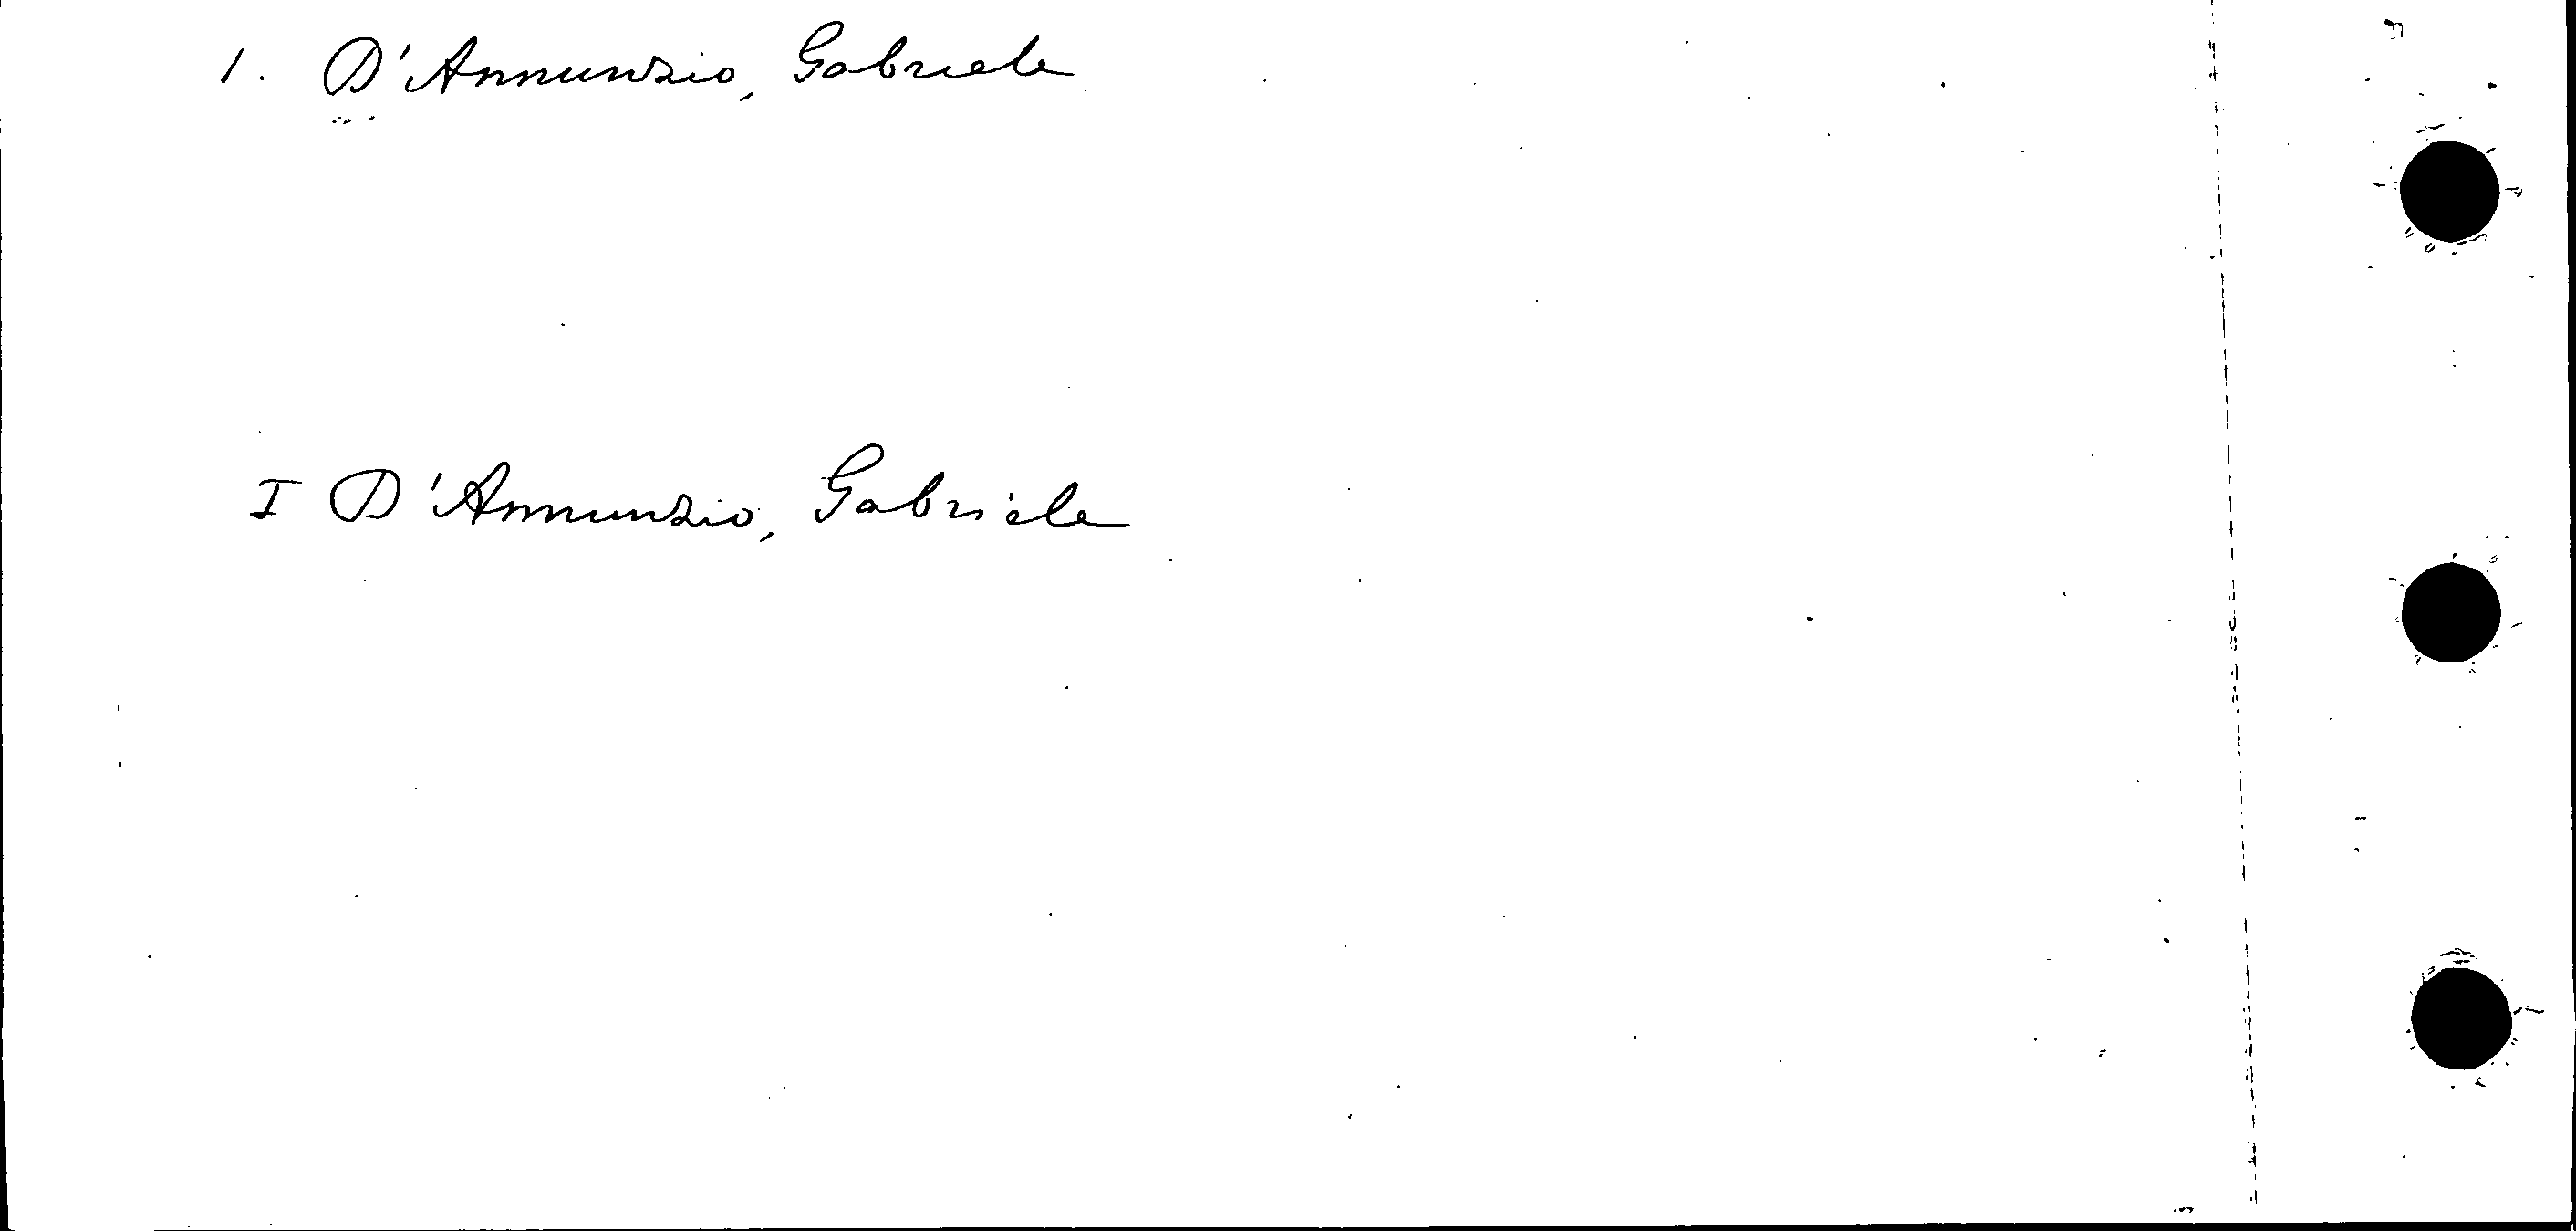 1. D'Annunzio, Gabriele
I D'Annunzio, Gabriele